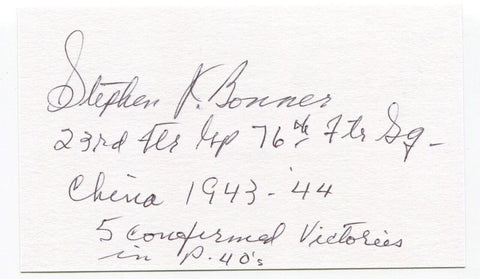 Stephen J. Bonner
23rd Ftr Gp 76th Ftr Sq -
China 1943 - '44
5 confirmed Victories
in P-40's